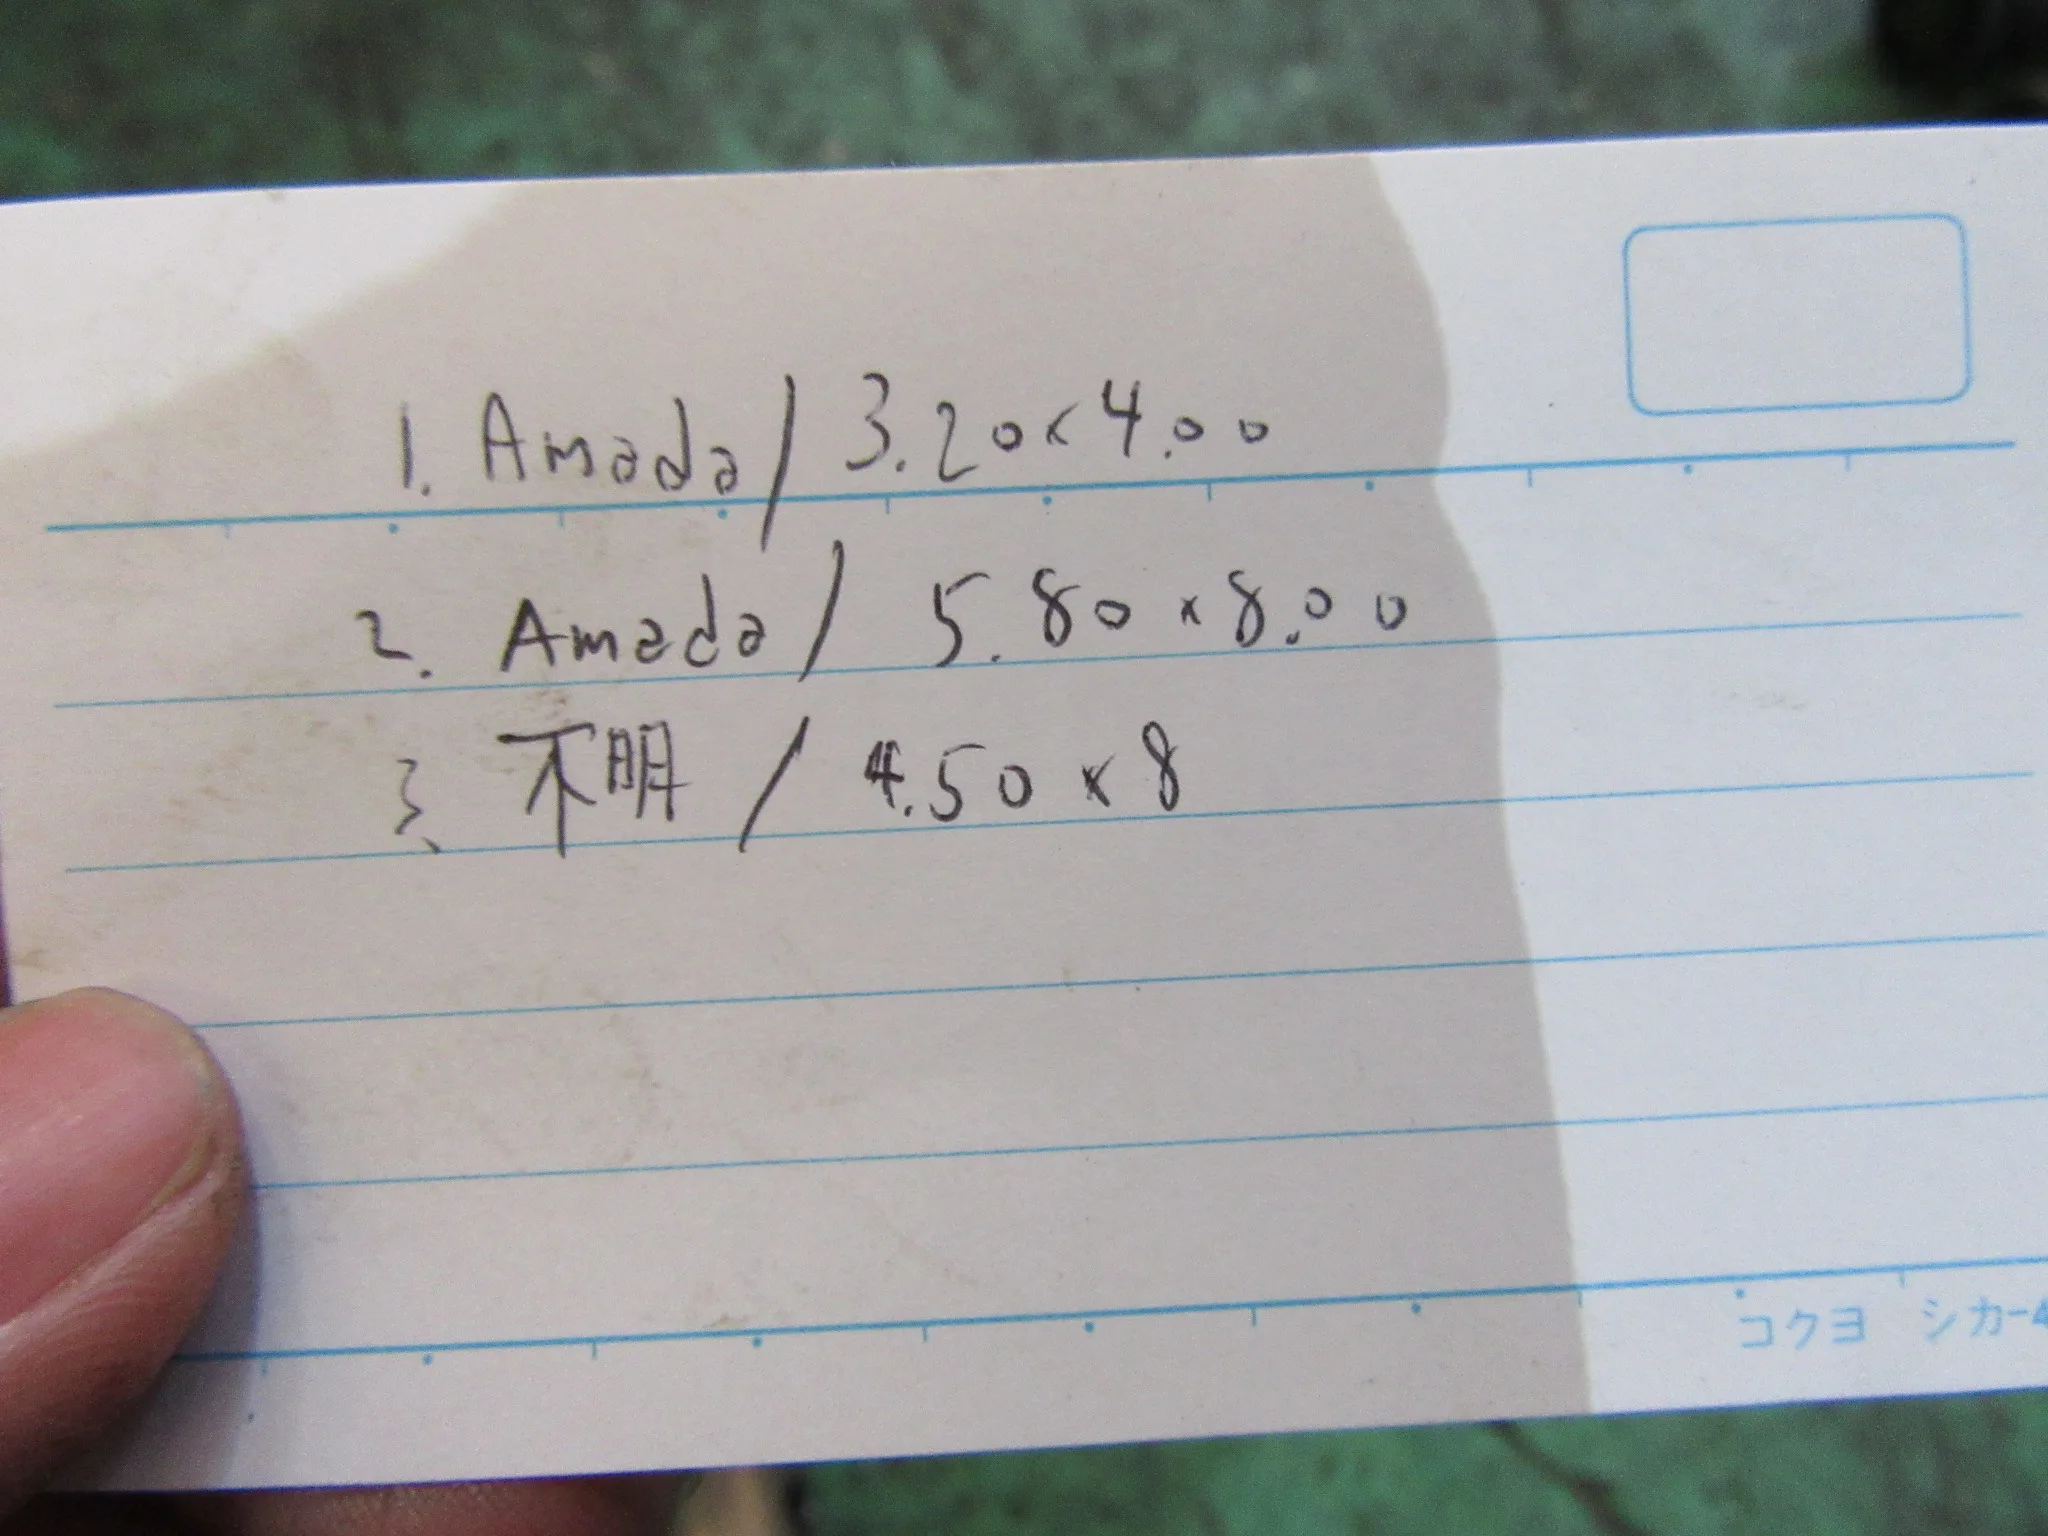 1. Amada / 3.20×4.00
2. Amada / 5.80×8.00
3. 不明 / 4.50×8
コクヨ シカ-4